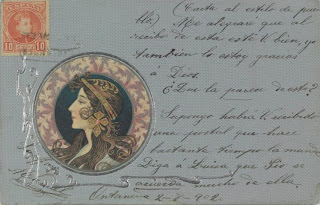 10 10
(Carta al estilo de pue-
blo.) Me alegraré que al
recibo de esta esté V. bien, yo
también lo estoy gracias
á Dios.
¿Que la parece de esto?
Supongo habrá V. recibido
una postal que hace
bastante tiempo la mandé
Diga á Luisa que Pio se
acuerda mucho de ella.
2-2-902